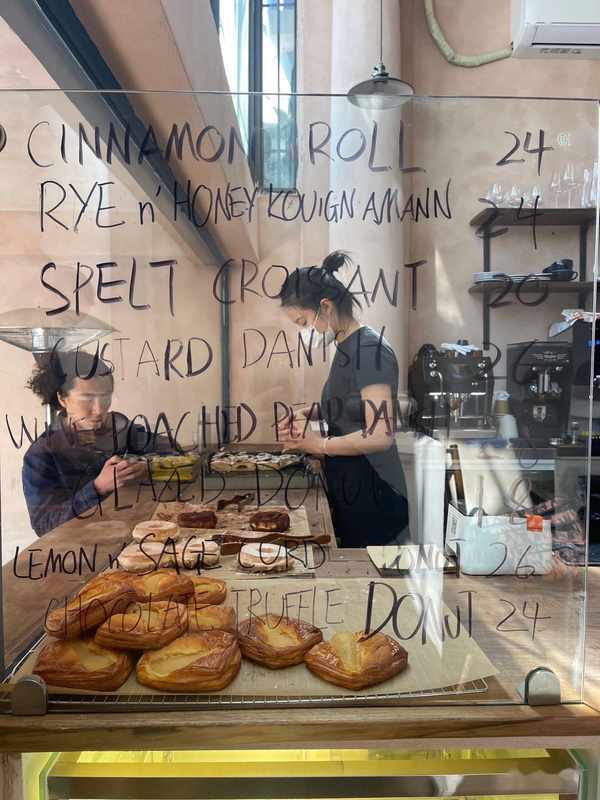 CINNAMON ROLL 24
RYE n' HONEY KOUIGN AMANN 24
SPELT CROISSANT 20
CUSTARD DANISH 26
WINE POACHED PEAR DANISH
GLAZED DONUT 18
LEMON n' SAGE CURD DONUT 26
CHOCOLATE TRUFFLE DONUT 24